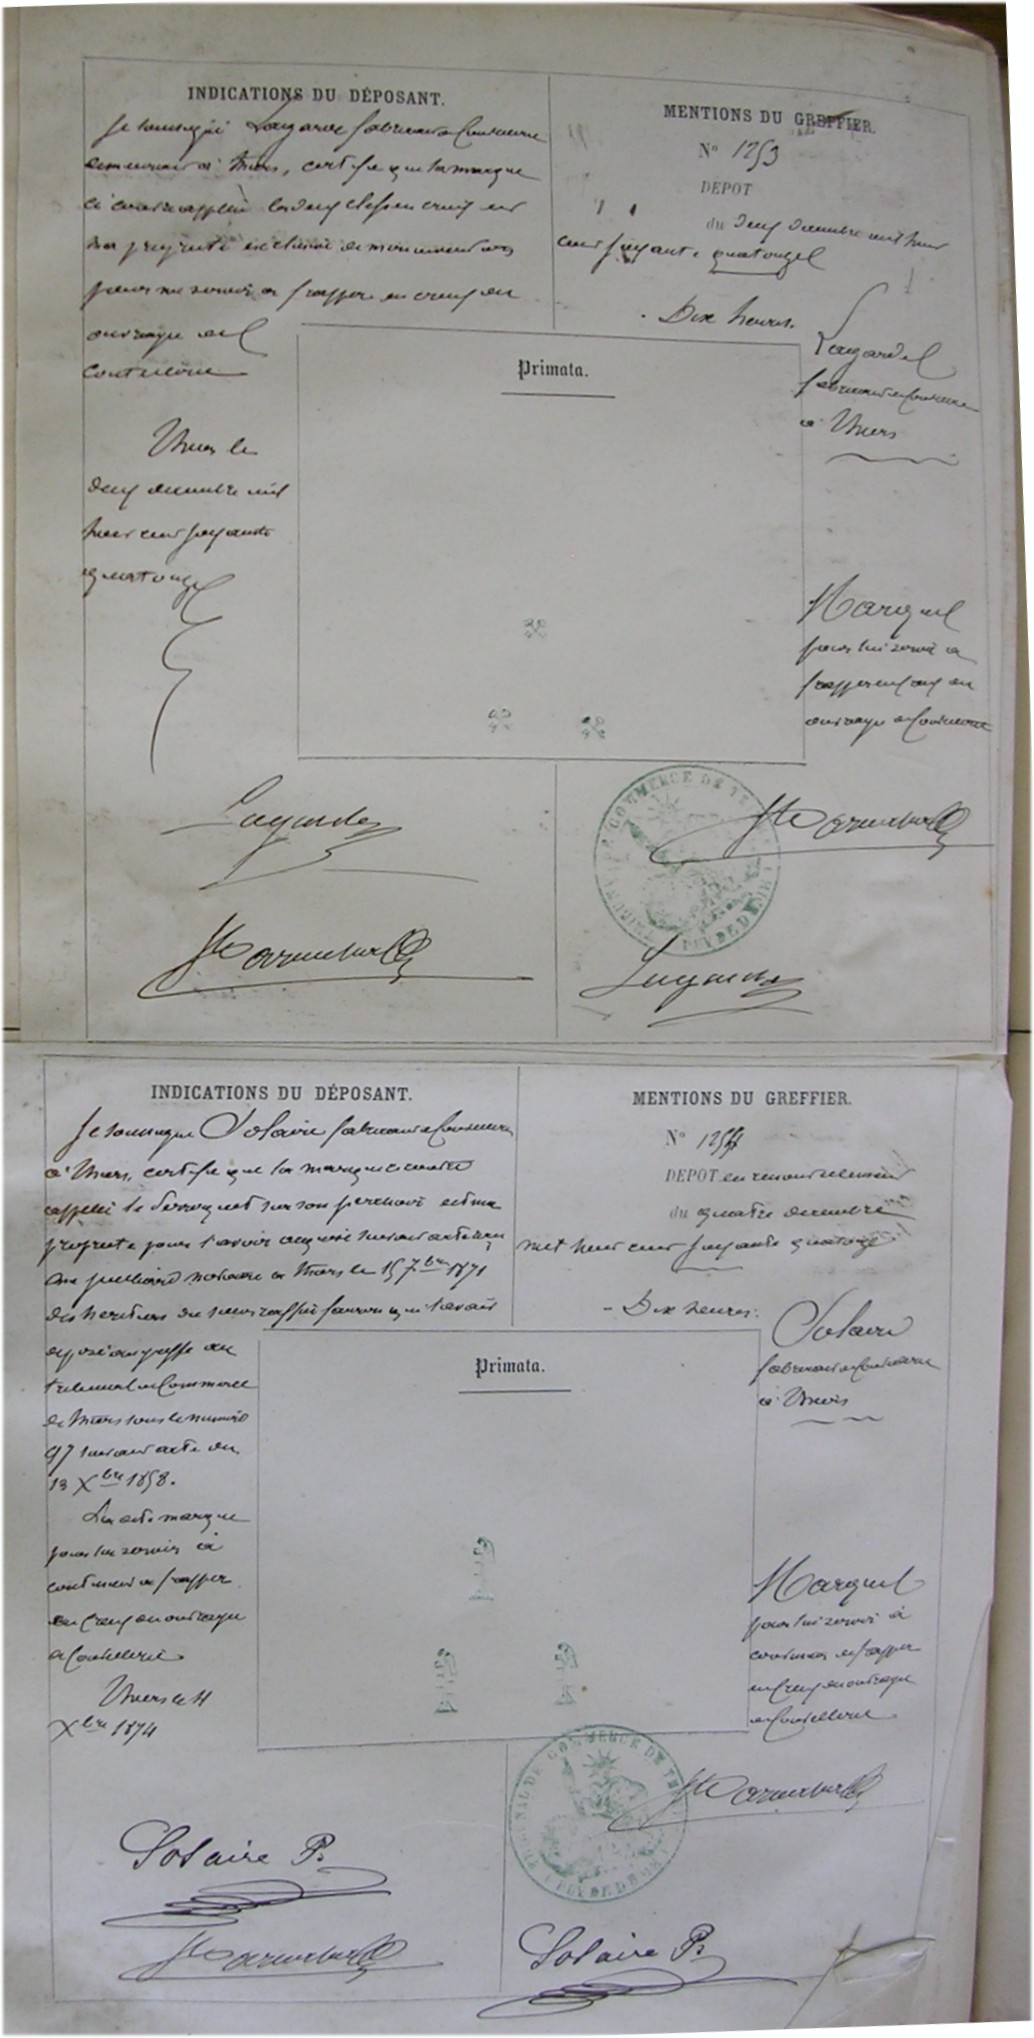 INDICATIONS DU DÉPOSANT.
Je soussigné Lagarde fabricant de Coutellerie
demeurant à Thiers, certifie que la marque
ci contre appelée les deux clefs en croix est
ma propriété exclusive
pour me servir à frapper en creux en
ouvrages de
Coutellerie
Thiers le
deux décembre mil
huit cent soixante
quatorze
MENTIONS DU GREFFIER.
N° 1253
DÉPOT
du deux décembre mil huit
cent soixante quatorze
Dix heures.
Primata.
Lagarde
fabricant de Coutellerie
à Thiers
Marque
pour lui servir à
frapper en creux en
ouvrages de Coutellerie
COMMERCE DE
PUY DE DÔME
Lagarde
Lagarde
INDICATIONS DU DÉPOSANT.
Je soussigné Solaire fabricant de Coutellerie
à Thiers, certifie que la marque ci contre
appelée le Perroquet sur son perchoir est ma
propriété pour l'avoir acquise suivant acte reçu
notaire à Thiers le 15 7bre 1871
des héritiers du sieur qui l'avait
déposé au greffe du
tribunal de Commerce
de Thiers sous le numéro
97 suivant acte du
13 Xbre 1858.
La dite marque
pour lui servir à
continuer à frapper
en Creux en ouvrages
de Coutellerie
Thiers le 4
Xbre 1874
MENTIONS DU GREFFIER.
N° 1254
DÉPOT en renouvellement
du quatre décembre
mil huit cent soixante quatorze
Dix heures.
Primata.
Solaire
fabricant de Coutellerie
à Thiers
Marque
pour lui servir à
continuer de frapper
en Creux en ouvrages
de Coutellerie
TRIBUNAL DE COMMERCE DE
PUY DE DÔME
Solaire P.
Solaire P.